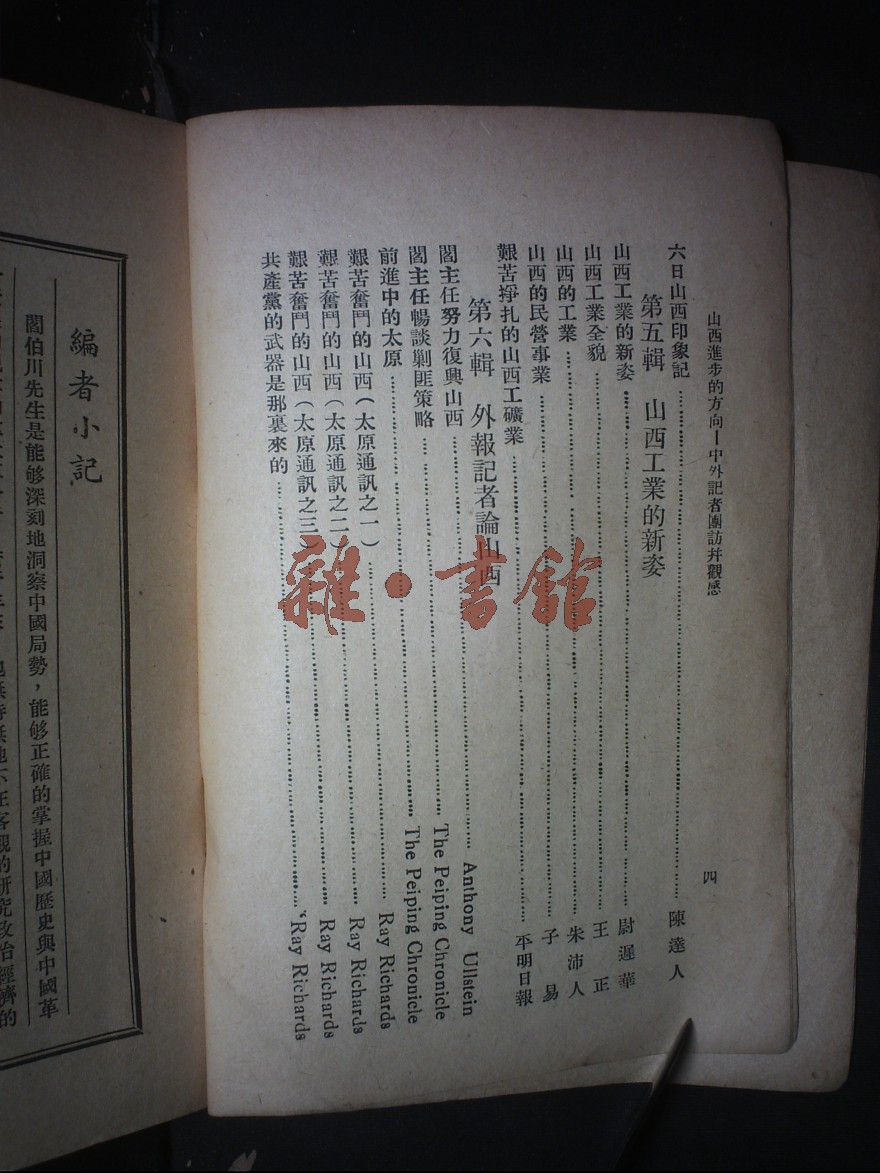 山西進步的方向—中外記者團訪幷觀感
四
六日山西印象記……陳達人
第五輯　山西工業的新姿
山西工業的新姿……尉遲華
山西工業全貌……王　正
山西的工業……朱沛人
山西的民營事業……子　易
艱苦掙扎的山西工礦業……平明日報
第六輯　外報記者論山西
閻主任努力復興山西……Anthony Ullstein
閻主任暢談剿匪策略……The Peiping Chronicle
前進中的太原……The Peiping Chronicle
艱苦奮鬥的山西（太原通訊之一）……Ray Richards
艱苦奮鬥的山西（太原通訊之二）……Ray Richards
艱苦奮鬥的山西（太原通訊之三）……Ray Richards
共產黨的武器是那裏來的……Ray Richards
編者小記
閻伯川先生是能够深刻地洞察中國局勢，能够正確的掌握中國歷史與中國革
客觀的研究政治經濟的
雜·書館